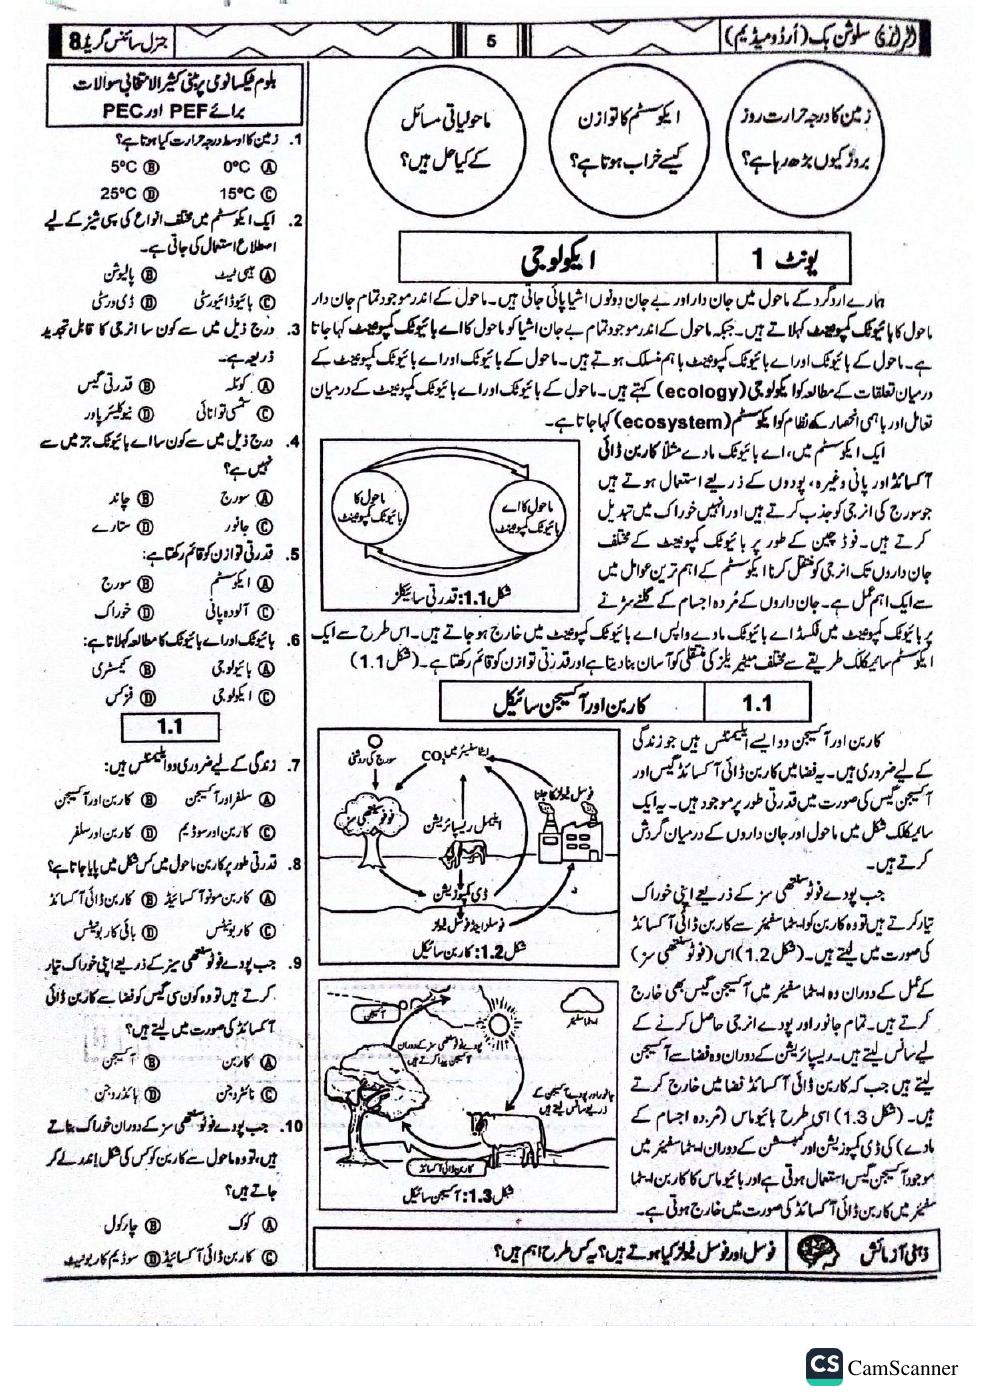 الرازی سلوشن بک (اُردو میڈیم)
5
جنرل سائنس گریڈ 8
زمین کا درجہ حرارت روز
بروز کیوں بڑھ رہا ہے؟
ایکوسسٹم کا توازن
کیسے خراب ہوتا ہے؟
ماحولیاتی مسائل
کے کیا حل ہیں؟
یونٹ 1
ایکولوجی
ہمارے اردگرد کے ماحول میں جان دار اور بے جان دونوں اشیا پائی جاتی ہیں۔ ماحول کے اندر موجود تمام جان دار
ماحول کا بائیوٹک کمپونینٹ کہلاتے ہیں۔ جبکہ ماحول کے اندر موجود تمام بے جان اشیا کو ماحول کا اے بائیوٹک کمپونینٹ کہا جاتا
ہے۔ ماحول کے بائیوٹک اور اے بائیوٹک کمپونینٹ باہم منسلک ہوتے ہیں۔ ماحول کے بائیوٹک اور اے بائیوٹک کمپونینٹ کے
درمیان تعلقات کے مطالعہ کو ایکولوجی (ecology) کہتے ہیں۔ ماحول کے بائیوٹک اور اے بائیوٹک کمپونینٹ کے درمیان
تعامل اور باہمی انحصار کے نظام کو ایکوسسٹم (ecosystem) کہا جاتا ہے۔
ایک ایکوسسٹم میں، اے بائیوٹک مادے مثلاً کاربن ڈائی
آکسائڈ اور پانی وغیرہ، پودوں کے ذریعے استعمال ہوتے ہیں
جو سورج کی انرجی کو جذب کرتے ہیں اور انہیں خوراک میں تبدیل
کرتے ہیں۔ فوڈ چین کے طور پر بائیوٹک کمپونینٹ کے مختلف
جان داروں تک انرجی کو منتقل کرنا ایکوسسٹم کے اہم ترین عوامل میں
سے ایک اہم عمل ہے۔ جان داروں کے مُردہ اجسام کے گلنے سڑنے
پر بائیوٹک کمپونینٹ میں فکسڈ اے بائیوٹک مادے واپس اے بائیوٹک کمپونینٹ میں خارج ہو جاتے ہیں۔ اس طرح سے ایک
ایکوسسٹم سائیکلک طریقے سے مختلف میٹیریلز کی منتقلی کو آسان بنا دیتا ہے اور قدرتی توازن کو قائم رکھتا ہے۔ (شکل 1.1)
ماحول کا
بائیوٹک کمپونینٹ
ماحول کا اے
بائیوٹک کمپونینٹ
شکل 1.1: قدرتی سائیکلز
1.1
کاربن اور آکسیجن سائیکل
کاربن اور آکسیجن دو ایسے ایلیمنٹس ہیں جو زندگی
کے لیے ضروری ہیں۔ یہ فضا میں کاربن ڈائی آکسائڈ گیس اور
آکسیجن گیس کی صورت میں قدرتی طور پر موجود ہیں۔ یہ ایک
سائیکلک شکل میں ماحول اور جان داروں کے درمیان گردش
کرتے ہیں۔
جب پودے فوٹوسنتھی سز کے ذریعے اپنی خوراک
تیار کرتے ہیں تو وہ کاربن کو ایٹماسفیئر سے کاربن ڈائی آکسائڈ
کی صورت میں لیتے ہیں۔ (شکل 1.2) اس (فوٹوسنتھی سز)
کے عمل کے دوران وہ ایٹماسفیئر میں آکسیجن گیس بھی خارج
کرتے ہیں۔ تمام جانور اور پودے انرجی حاصل کرنے کے
لیے سانس لیتے ہیں۔ ریسپائریشن کے دوران وہ فضا سے آکسیجن
لیتے ہیں جب کہ کاربن ڈائی آکسائڈ فضا میں خارج کرتے
ہیں۔ (شکل 1.3) اسی طرح بائیوماس (مُردہ اجسام کے
مادے) کی ڈی کمپوزیشن اور کمبسشن کے دوران ایٹماسفیئر میں
موجود آکسیجن گیس استعمال ہوتی ہے اور بائیوماس کا کاربن ایٹما
سفیئر میں کاربن ڈائی آکسائڈ کی صورت میں خارج ہوتی ہے۔
ایٹماسفیئر میں CO₂
سورج کی روشنی
فوٹوسنتھی سز
اینیمل ریسپائریشن
فوسل فیولز کا جلنا
ڈی کمپوزیشن
فوسلز اینڈ فوسل فیولز
شکل 1.2: کاربن سائیکل
آکسیجن
ایٹماسفیئر
پودے فوٹوسنتھی سز کے دوران
آکسیجن پیدا کرتے ہیں
جانور اور پودے آکسیجن کے
ذریعے سانس لیتے ہیں
کاربن ڈائی آکسائڈ
شکل 1.3: آکسیجن سائیکل
ذہنی آزمائش
فوسل اور فوسل فیولز کیا ہوتے ہیں؟ یہ کس طرح اہم ہیں؟
بلوم ٹیکسانومی پر مبنی کثیر الانتخابی سوالات
برائے PEF اور PEC
1. زمین کا اوسط درجہ حرارت کیا ہوتا ہے؟
Ⓐ 0°C Ⓑ 5°C
Ⓒ 15°C Ⓓ 25°C
2. ایک ایکوسسٹم میں مختلف انواع کی سپی شیز کے لیے
اصطلاح استعمال کی جاتی ہے۔
Ⓐ ہیبی ٹیٹ Ⓑ پالیوشن
Ⓒ بائیوڈائیورسٹی Ⓓ ڈی ورسٹی
3. درج ذیل میں سے کون سا انرجی کا قابل تجدید
ذریعہ ہے۔
Ⓐ کوئلہ Ⓑ قدرتی گیس
Ⓒ شمسی توانائی Ⓓ نیوکلیئر پاور
4. درج ذیل میں سے کون سا اے بائیوٹک جز میں سے
نہیں ہے؟
Ⓐ سورج Ⓑ چاند
Ⓒ جانور Ⓓ ستارے
5. قدرتی توازن کو قائم رکھتا ہے:
Ⓐ ایکوسسٹم Ⓑ سورج
Ⓒ آلودہ پانی Ⓓ خوراک
6. بائیوٹک اور اے بائیوٹک کا مطالعہ کہلاتا ہے:
Ⓐ بائیولوجی Ⓑ کیمسٹری
Ⓒ ایکولوجی Ⓓ فزکس
1.1
7. زندگی کے لیے ضروری دو ایلیمنٹس ہیں:
Ⓐ سلفر اور آکسیجن Ⓑ کاربن اور آکسیجن
Ⓒ کاربن اور سوڈیم Ⓓ کاربن اور سلفر
8. قدرتی طور پر کاربن ماحول میں کس شکل میں پایا جاتا ہے؟
Ⓐ کاربن مونو آکسائیڈ Ⓑ کاربن ڈائی آکسائڈ
Ⓒ کاربونیٹس Ⓓ بائی کاربونیٹس
9. جب پودے فوٹوسنتھی سیز کے ذریعے اپنی خوراک تیار
کرتے ہیں تو وہ کون سی گیس کو فضا سے کاربن ڈائی
آکسائڈ کی صورت میں لیتے ہیں؟
Ⓐ کاربن Ⓑ آکسیجن
Ⓒ نائٹروجن Ⓓ ہائڈروجن
10. جب پودے فوٹوسنتھی سز کے دوران خوراک بناتے
ہیں، تو وہ ماحول سے کاربن کو کس کی شکل اندر لے کر
جاتے ہیں؟
Ⓐ کوک Ⓑ چارکول
Ⓒ کاربن ڈائی آکسائیڈ Ⓓ سوڈیم کاربونیٹ
CS CamScanner